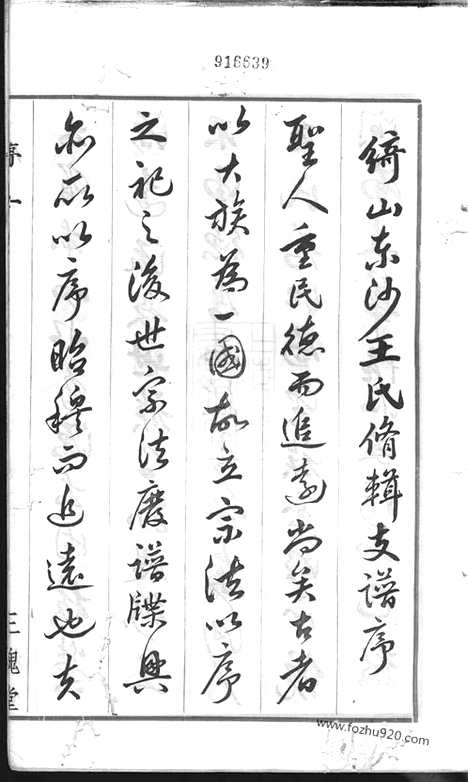 916639
綺山东沙王氏脩輯支譜序
聖人重民德而追遠尚矣古者
以大族為一國故立宗法以序
之祀之後世宗法廢譜牒興
亦所以序昭穆而追遠也夫
序 一 三槐堂
www.fozhu920.com